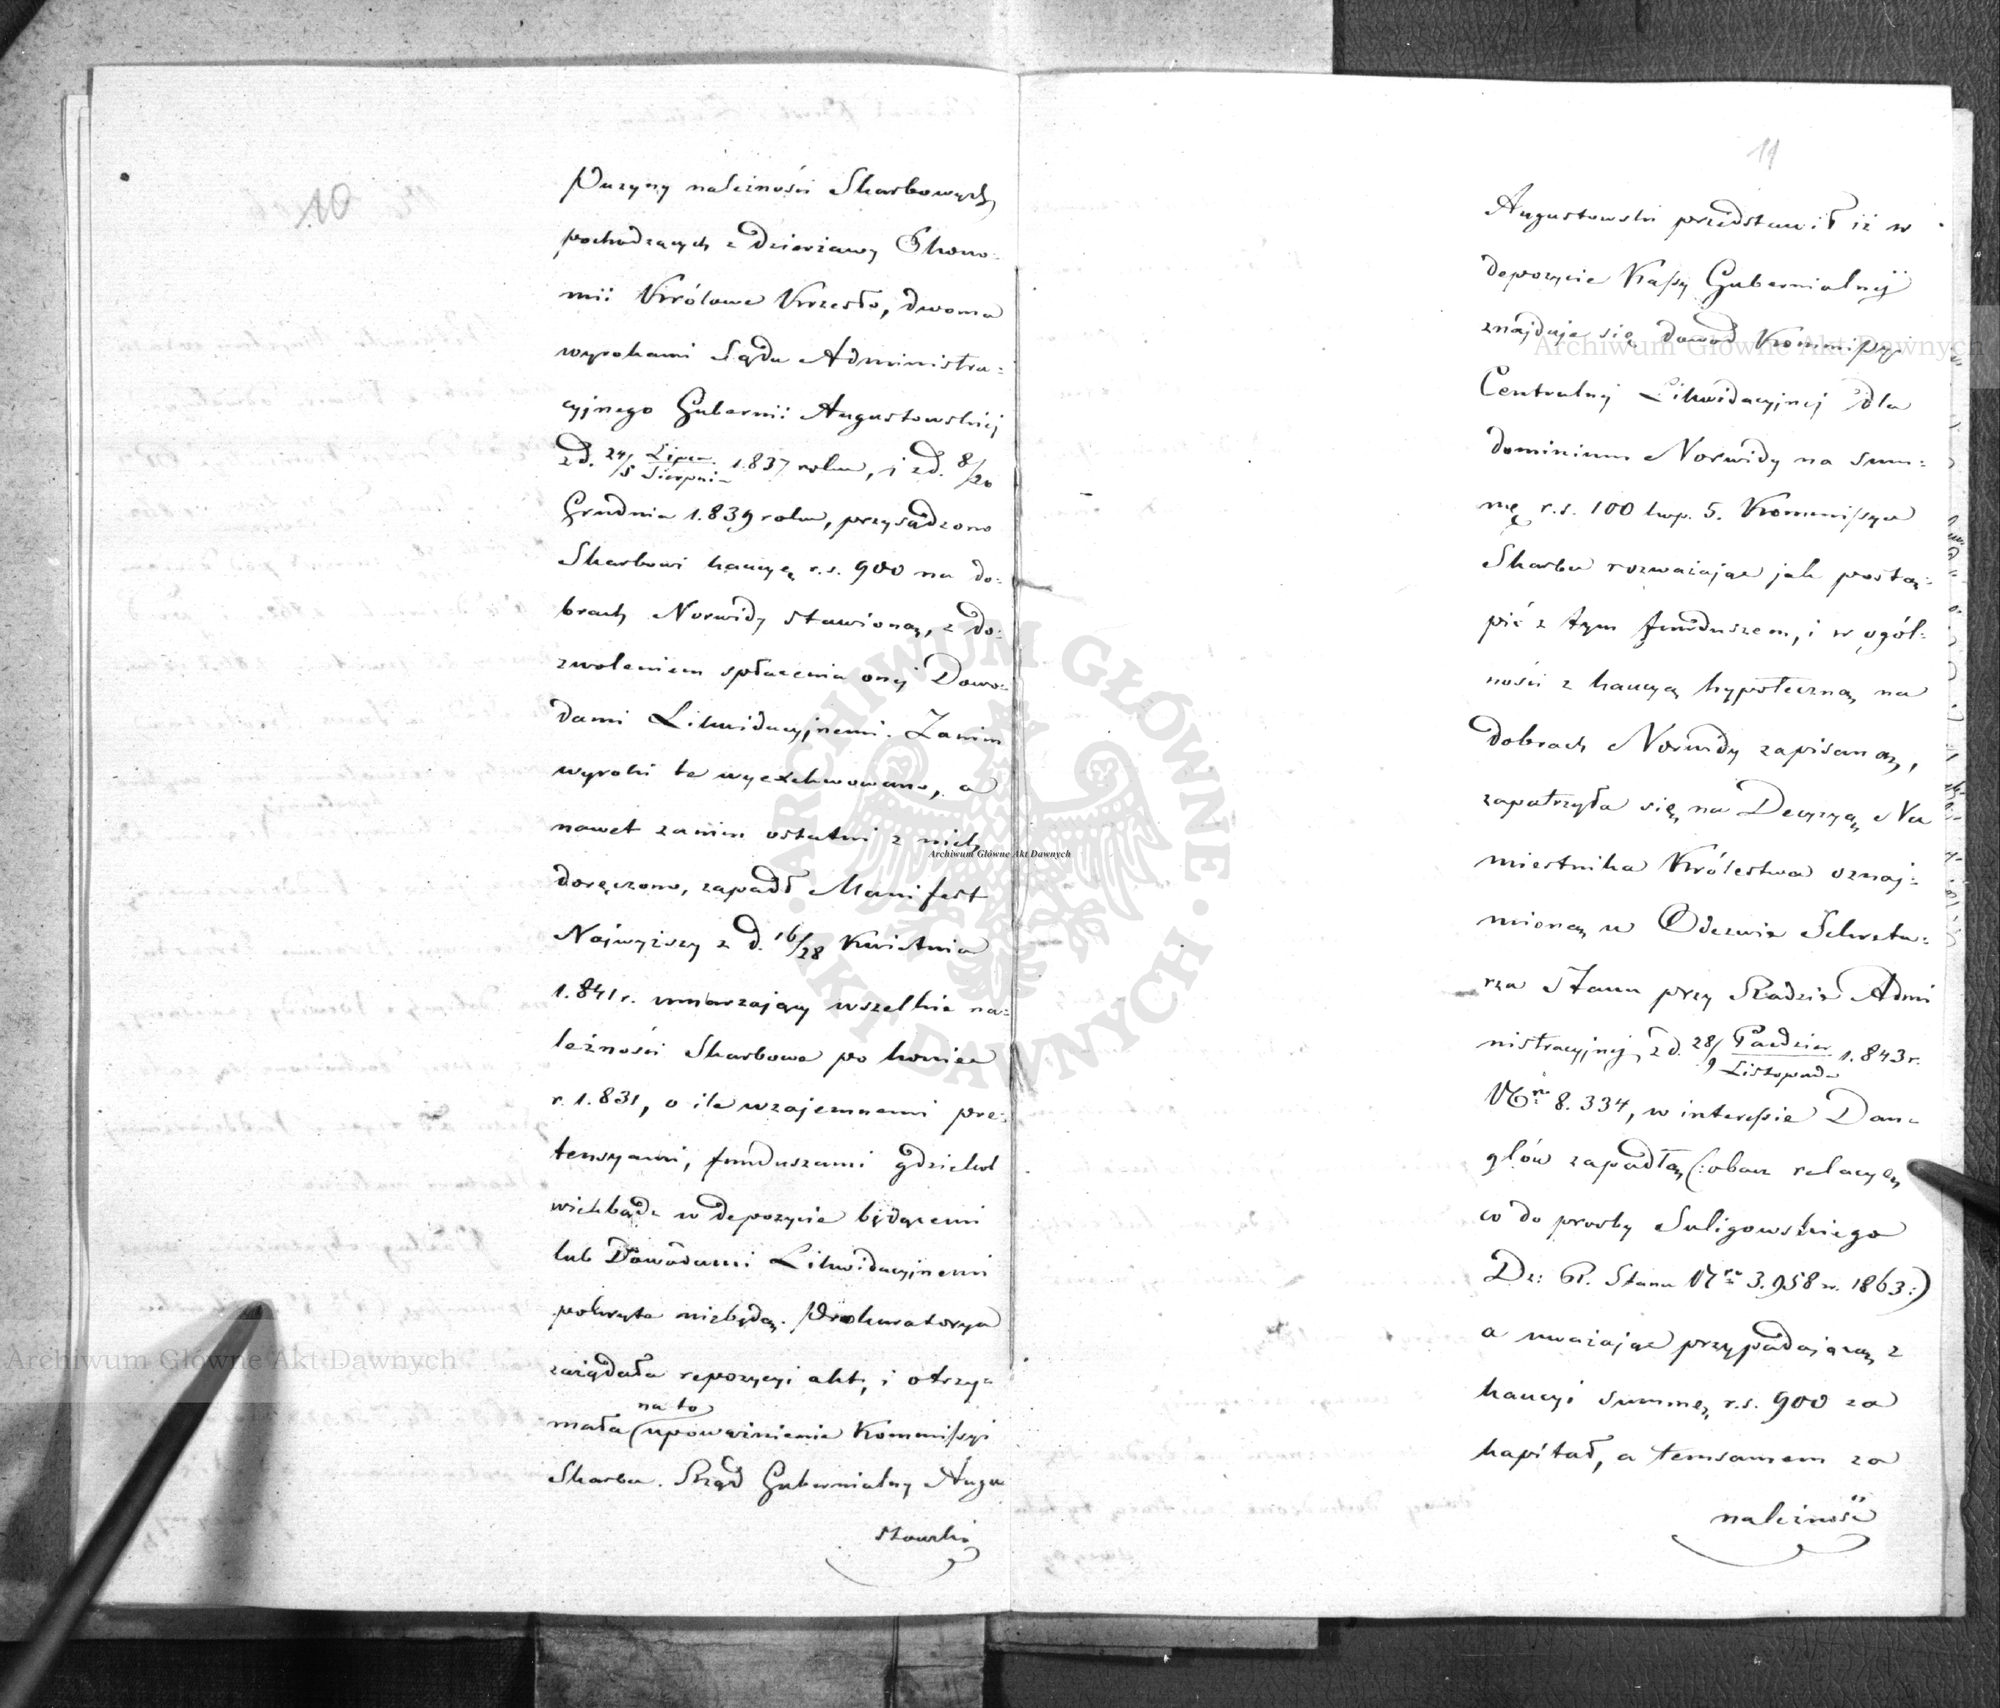 Puzyny należności Skarbowych,
pochodzących z Dzierżawy Ekono-
mii Królowe Krzesło, dwoma
wyrokami Sądu Administra-
cyjnego Gubernii Augustowskiej
z d. 24/5 Lipca/Sierpnia 1.837 roku, i z d. 8/20
Grudnia 1.839 roku, przysądzono
Skarbowi kaucyę r.s. 900 na do-
brach Norwidy stawioną, z do-
zwoleniem spłacenia onej Dowo-
dami Likwidacyjnemi. Zanim
wyroki te wyexekwowano, a
nawet zanim ostatni z nich
doręczono, zapadł Manifest
Najwyższy z d. 16/28 Kwietnia
1.841 r. umarzający wszelkie na-
leżności Skarbowe po koniec
r. 1.831, o ile wzajemnemi pre-
tensyami, funduszami gdziekol
wiekbądź w depozycie będącemi
lub Dowodami Likwidacyjnemi
pokryte niebędą. Prokuratorya
zażądała repozycyi akt, i otrzy-
na to
mała upoważnienie Kommissyi
Skarbu. Rząd Gubernialny Augu
stowski
11
Augustowski przedstawił iż w
depozycie Kassy Gubernialnej
znajduje się dowód Kommissyi
Centralnej Likwidacyjnej dla
dominium Norwidy na sum-
mę r.s. 100 kop. 5. Kommissya
Skarbu rozważając jak postą-
pić z tym funduszem, i w ogól-
ności z kaucyą hypoteczną na
dobrach Norwidy zapisaną,
zapatrzyła się na Decyzyę Na
miestnika Królestwa oznaj-
mioną w Odezwie Sekreta-
rza Stanu przy Radzie Admi
nistracyjnej z d. 28/9 Paździer./Listopada 1.843 r.
Nro 8.334, w interessie Dan-
glów zapadłą (: obacz relacyę
co do prośby Suligowskiego
Dz: Pr. Stanu Nro 3.958 r. 1863 :)
a uważając przypadającą z
kaucyi summę r.s. 900 za
kapitał, a temsamem za
należność
Archiwum Główne Akt Dawnych
Archiwum Główne Akt Dawnych
Archiwum Główne Akt Dawnych
ARCHIWUM GŁÓWNE
AKT DAWNYCH